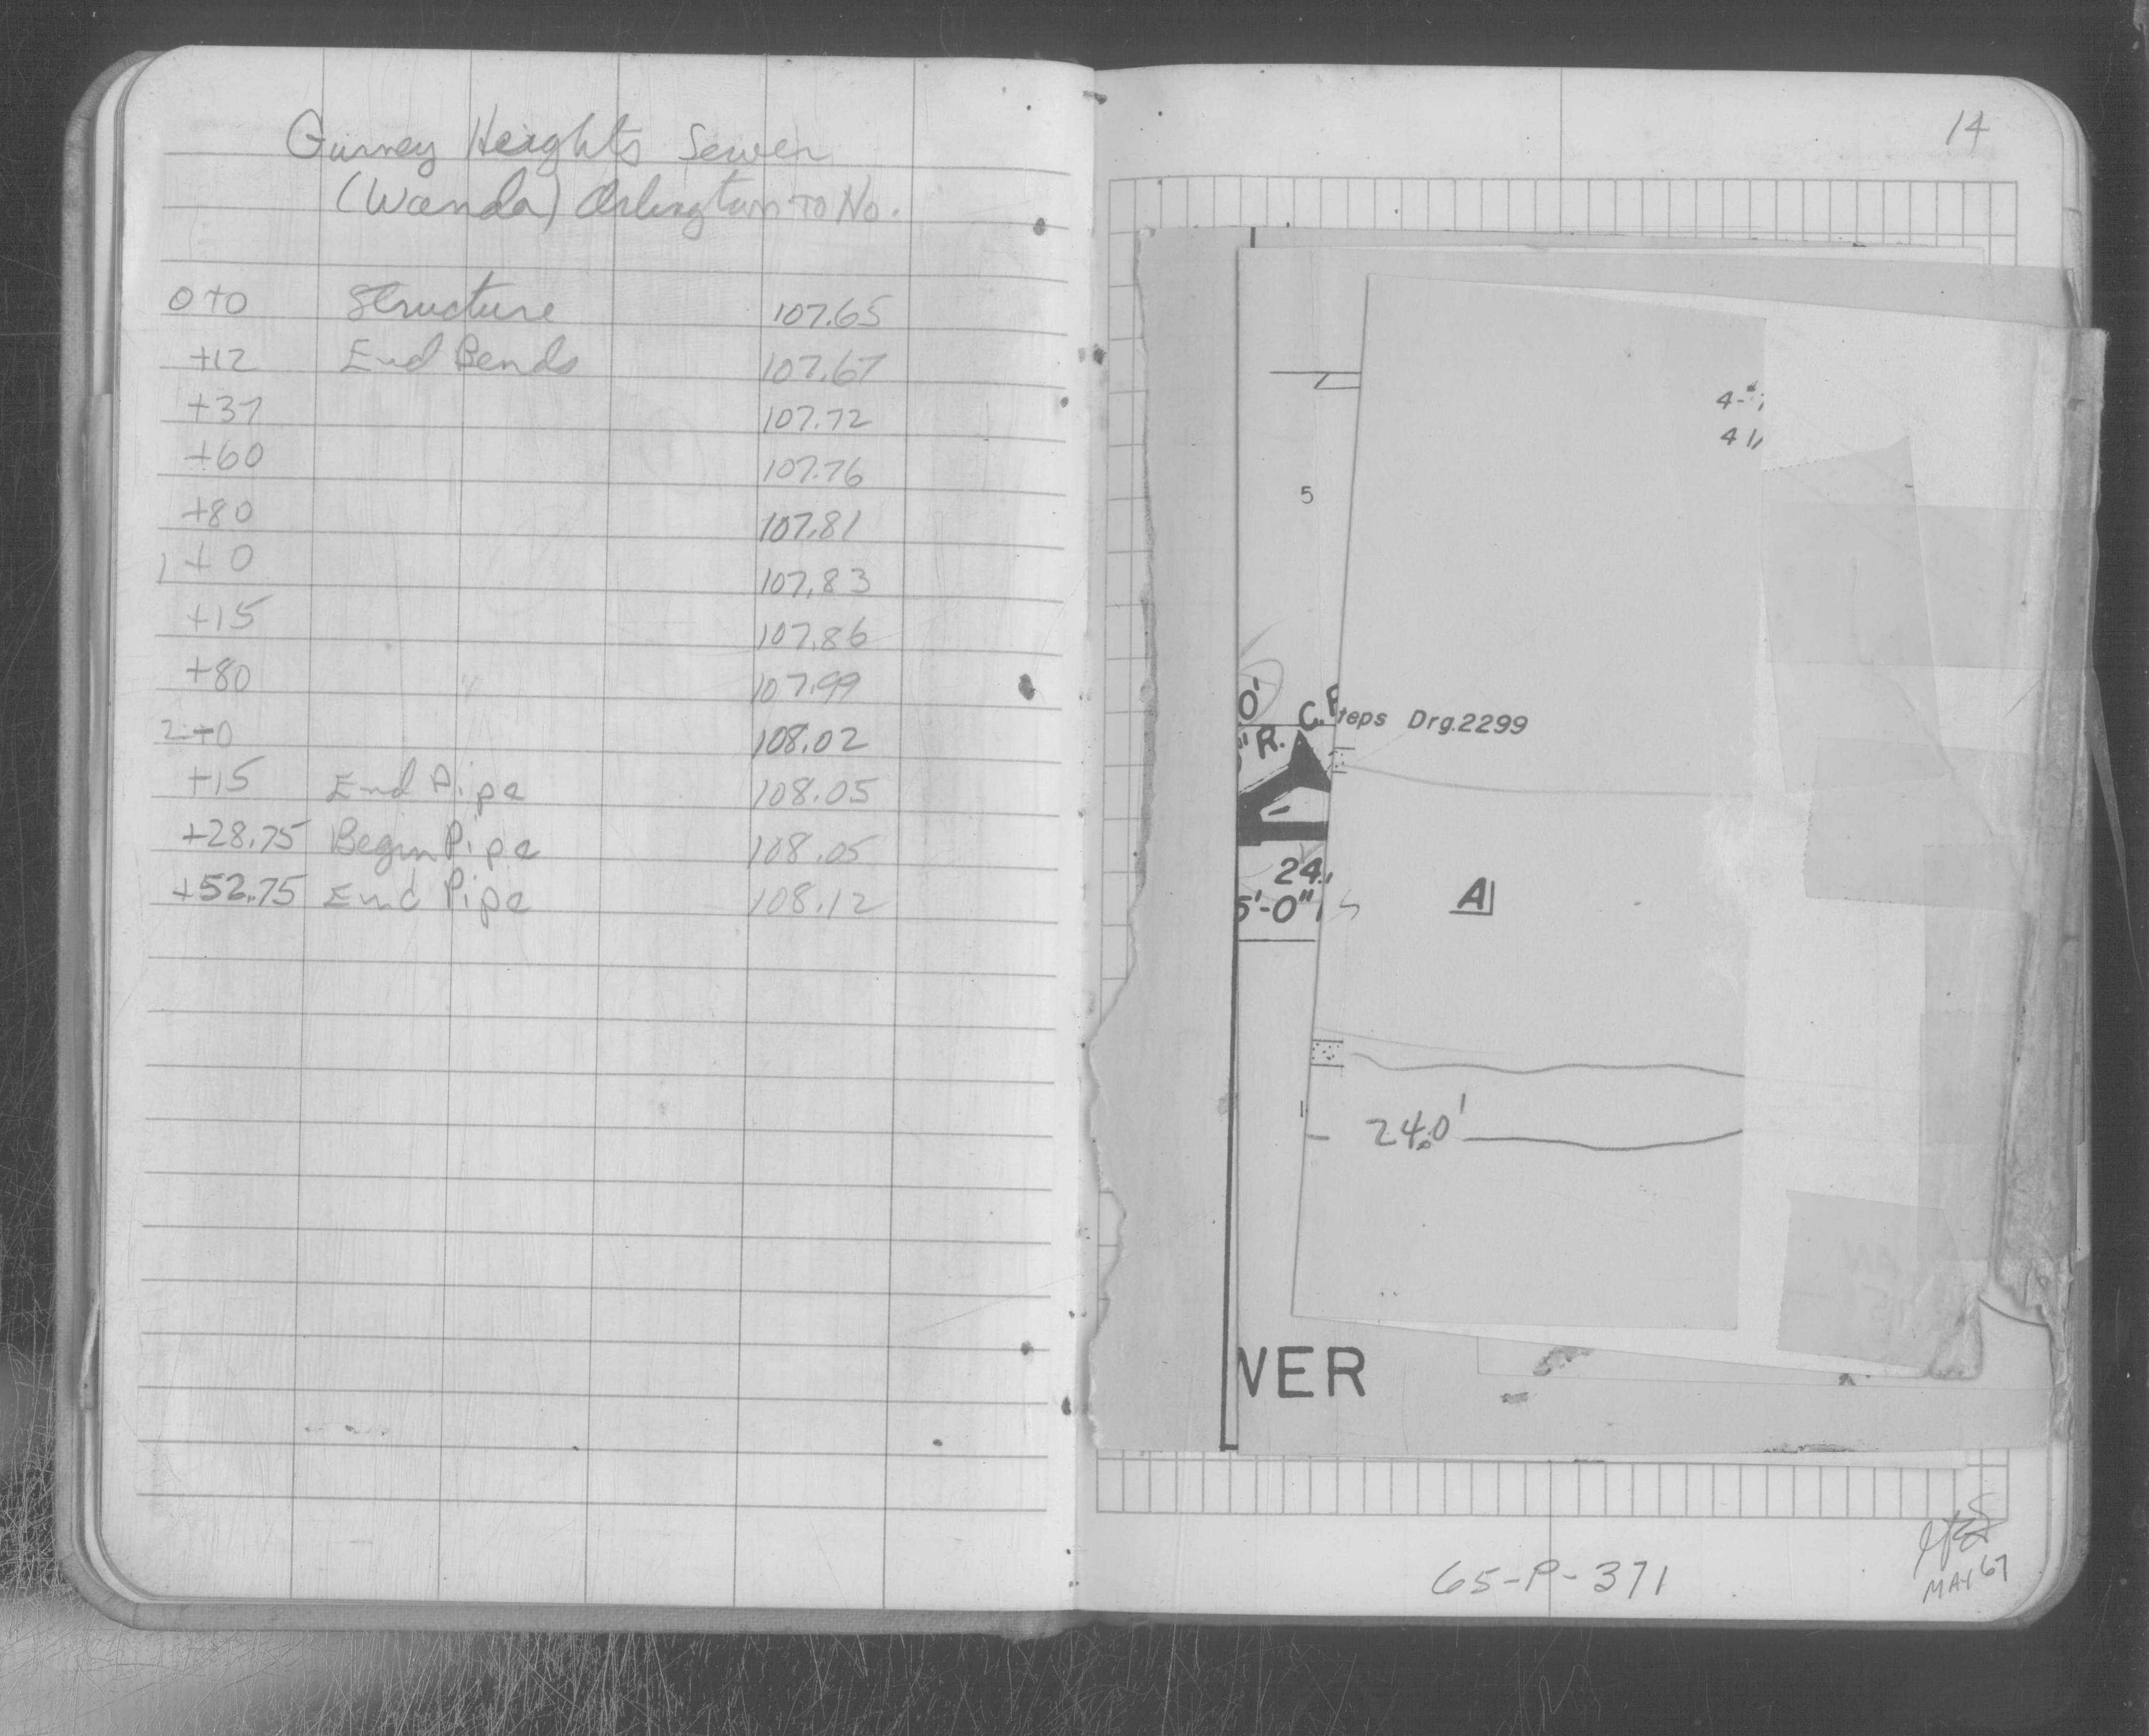 Gurney Heights Sewer
(Wanda) Arlington to No.
0+0 Structure 107.65
+12 End Bends 107.67
+37 107.72
+60 107.76
+80 107.81
1+0 107.83
+15 107.86
+80 107.99
2+0 108.02
+15 End Pipe 108.05
+28.75 Begin Pipe 108.05
+52.75 End Pipe 108.12
14
5
0'
"R. C.P
teps Drg.2299
24.
5'-0"
A
24.0'
VER
65-P-371
MAY 67